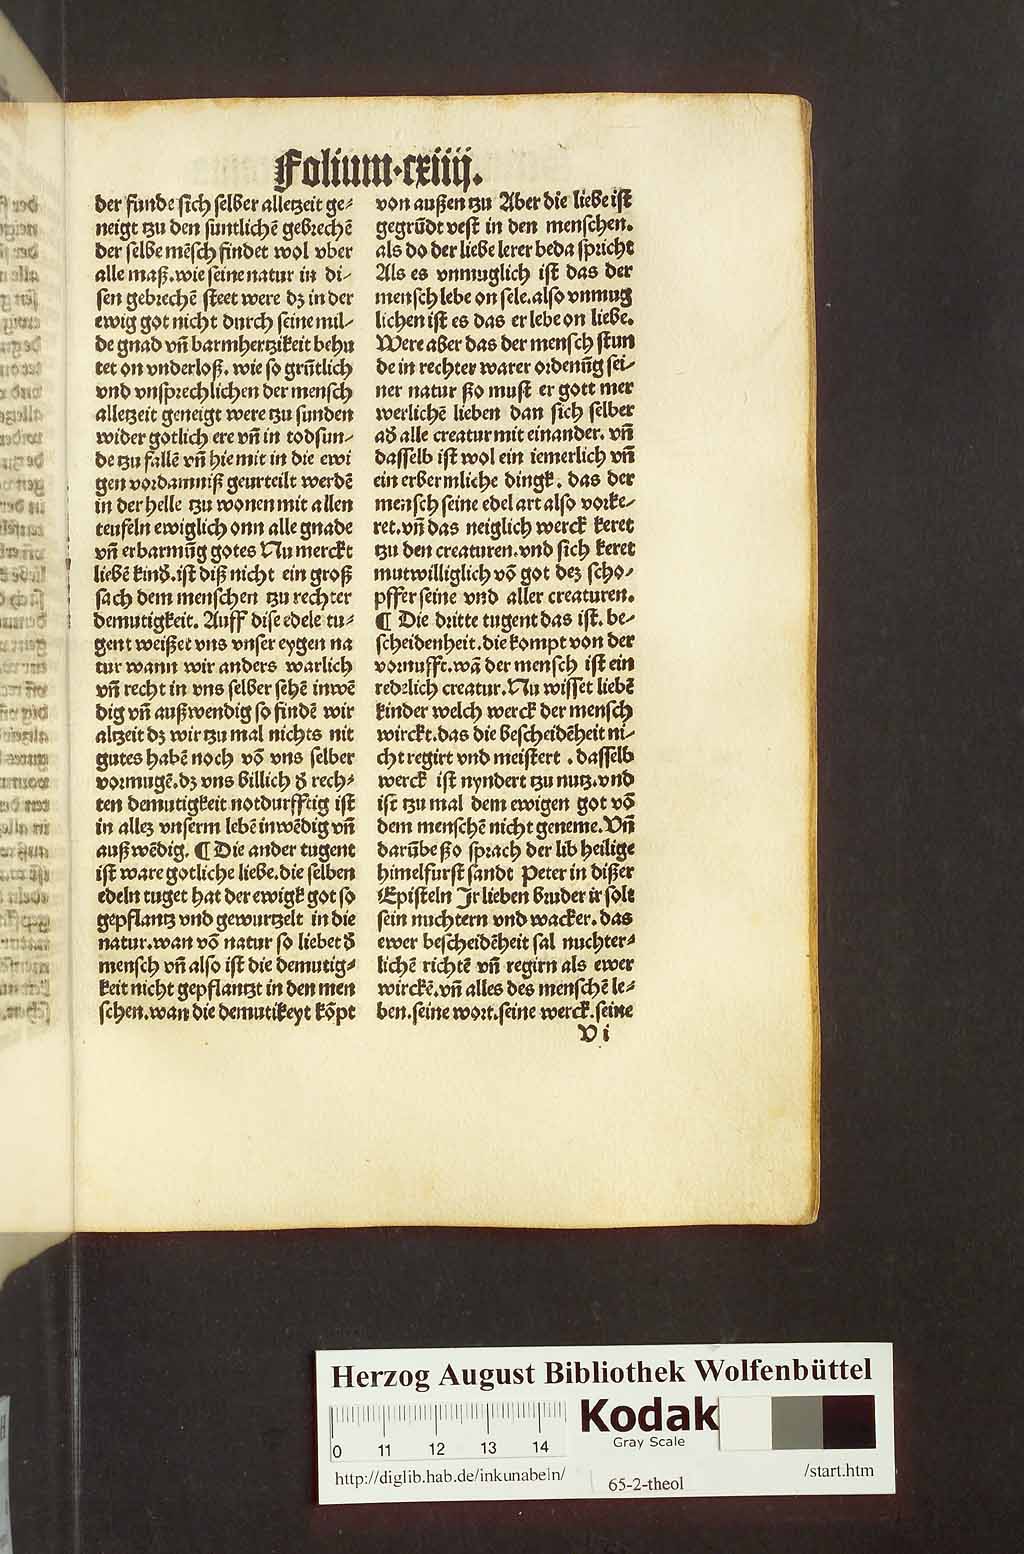 Folium.cxiiij.
der funde sich selber alletzeit ge⸗
neigt tzu den suntlichē gebrechē
der selbe mēsch findet wol vber
alle maß.wie seine natur in di⸗
sen gebrechē steet were dz in der
ewig got nicht durch seine mil⸗
de gnad vn̄ barmhertzikeit behu
tet on vnderloß. wie so grūtlich
vnd vnsprechlichen der mensch
alletzeit geneigt were tzu sunden
wider gotlich ere vn̄ in todsun⸗
de tzu fallē vn̄ hie mit in die ewi
gen vordamniß geurteilt werdē
in der helle tzu wonen mit allen
teufeln ewiglich onn alle gnade
vn̄ erbarmūg gotes Nu merckt
liebē kinđ.ist diß nicht ein groß
sach dem menschen tzu rechter
demutigkeit. Auff dise edele tu⸗
gent weißet vns vnser eygen na
tur wann wir anders warlich
vn̄ recht in vns selber sehē inwē
dig vn̄ außwendig so findē wir
altzeit dz wir tzu mal nichts nit
gutes habē noch vō vns selber
vormugē.dz vns billich đ rech⸗
ten demutigkeit notdurfftig ist
in allez vnserm lebē inwēdig vn̄
außwēdig. ¶ Die ander tugent
ist ware gotliche liebe.die selben
edeln tuget hat der ewigk got so
gepflantz vnd gewurtzelt in die
natur.wan vō natur so liebet đ
mensch vn̄ also ist die demutig⸗
keit nicht gepflantzt in den men
schen.wan die demutikeyt kōpt
von außen tzu Aber die liebe ist
gegrūdt vest in den menschen.
als do der liebe lerer beda spricht
Als es vnmuglich ist das der
mensch lebe on sele.also vnmug
lichen ist es das er lebe on liebe.
Were aber das der mensch stun
de in rechter warer ordenūg sei⸗
ner natur ßo must er gott mer
werlichē lieben dan sich selber
ađ alle creatur mit einander. vn̄
dasselb ist wol ein iemerlich vn̄
ein erbermliche dingk. das der
mensch seine edel art also vorke⸗
ret.vn̄ das neiglich werck keret
tzu den creaturen.vnd sich keret
mutwilliglich vō got dez scho⸗
pffer seine vnd aller creaturen.
¶ Die dritte tugent das ist. be⸗
scheidenheit.die kompt von der
vornufft.wā der mensch ist ein
redelich creatur.Nu wisset liebē
kinder welch werck der mensch
wirckt.das die bescheidēheit ni⸗
cht regirt vnd meistert .dasselb
werck ist nyndert tzu nutz.vnd
ist tzu mal dem ewigen got vō
dem menschē nicht geneme.Vn̄
darūbe ßo sprach der lib heilige
himelfurst sandt Peter in dißer
Episteln Ir lieben bruder ir solt
sein nuchtern vnd wacker. das
ewer bescheidēheit sal nuchter⸗
lichē richtē vn̄ regirn als ewer
wirckē.vn̄ alles des menschē le⸗
ben.seine wort.seine werck.seine
V i
Herzog August Bibliothek Wolfenbüttel
Kodak
Gray Scale
0 11 12 13 14
http://diglib.hab.de/inkunabeln/
65-2-theol
/start.htm